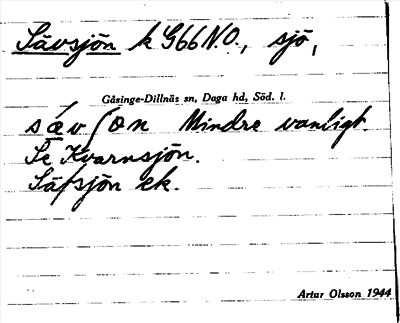 Sävsjön k G66 N.O., sjö,
Gåsinge-Dillnäs sn, Daga hd, Söd. l.
sǽvʃøn Mindre vanligt.
Se Kvarnsjön.
Säfsjön ek.
Artur Olsson 1944